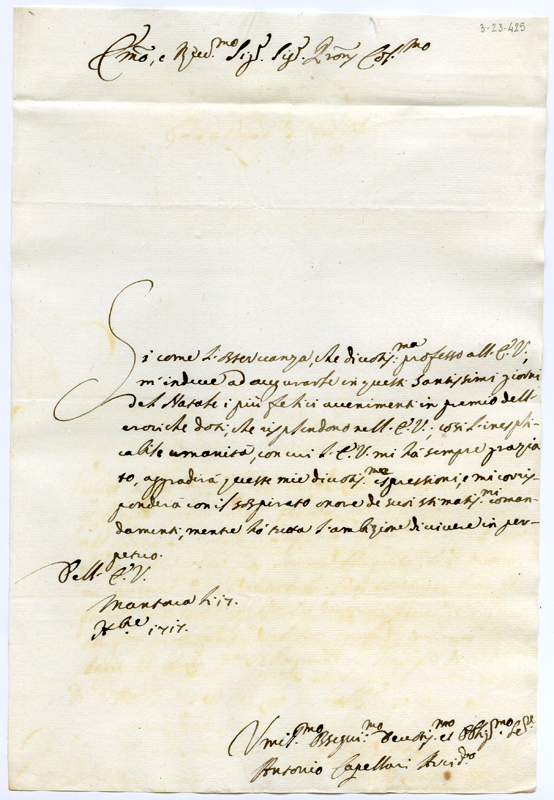 3-23-425
Em̃o, e Rev.mo Sig.r Sig.r Prõn Col.mo
Si come l'osservanza, che divotis.ma professo all'E.V.,
m'induce ad augurarle in questi Santissimi giorni
del Natale i più felici avvenimenti in premio dell'
eroiche doti, che risplendono nell'E.V., così l'inespli-
cabile umanità, con cui l'E.V. mi hà sempre grazia-
to, aggradirà queste mie divotis.me espressioni, e mi corris-
ponderà con il sospirato onore de suoi stimatis.mi coman-
damenti, mentre hò tutta l'ambizione di vivere in per-
petuo.
Dell'E.V.
Mantova li 17.
Xbre 1717.
Umil.mo Ossequi.mo Devotis.mo et Obblig.mo Se.re
Antonio Capellari